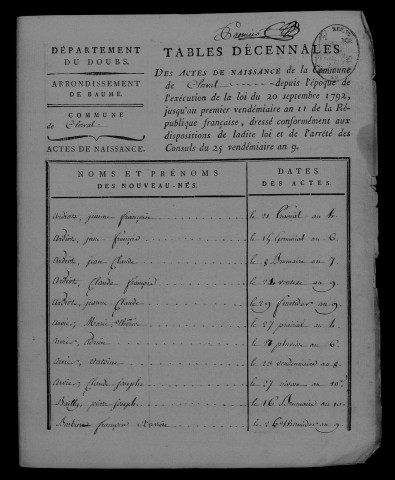 DÉPARTEMENT
DU DOUBS.
ARRONDISSEMENT
DE BAUME.
COMMUNE
de Clerval
ACTES DE NAISSANCE.
TABLES DÉCENNALES
DES ACTES DE NAISSANCE de la Commune
de Clerval depuis l'époque de
l'exécution de la loi du 20 septembre 1792,
jusqu'au premier vendémiaire an 11 de la Ré-
publique française, dressé conformément aux
dispositions de ladite loi et de l'arrêté des
Consuls du 25 vendémiaire an 9.
NOMS ET PRÉNOMS
DES NOUVEAU-NÉS.
DATES
DES ACTES.
jeanne françoise le 21 prairial an 4.
Ardiot, jean françois le 15 Germinal an 6.
Ardiot, jean Claude le 8 Brumaire an 7.
Ardiot, Claude françois le 24 ventose an 9.
Ardiot, jeanne Claude le 29 fructidor an 9.
Marie le 27 prairial an 4.
le 27 pluviose an 6.
Antoine le 23 vendémiaire an 8.
Claude joseph le 27 nivose an 10.
Bailly, pierre joseph le 16 Brumaire an 10.
françois Xavier le 26 thermidor an 9.